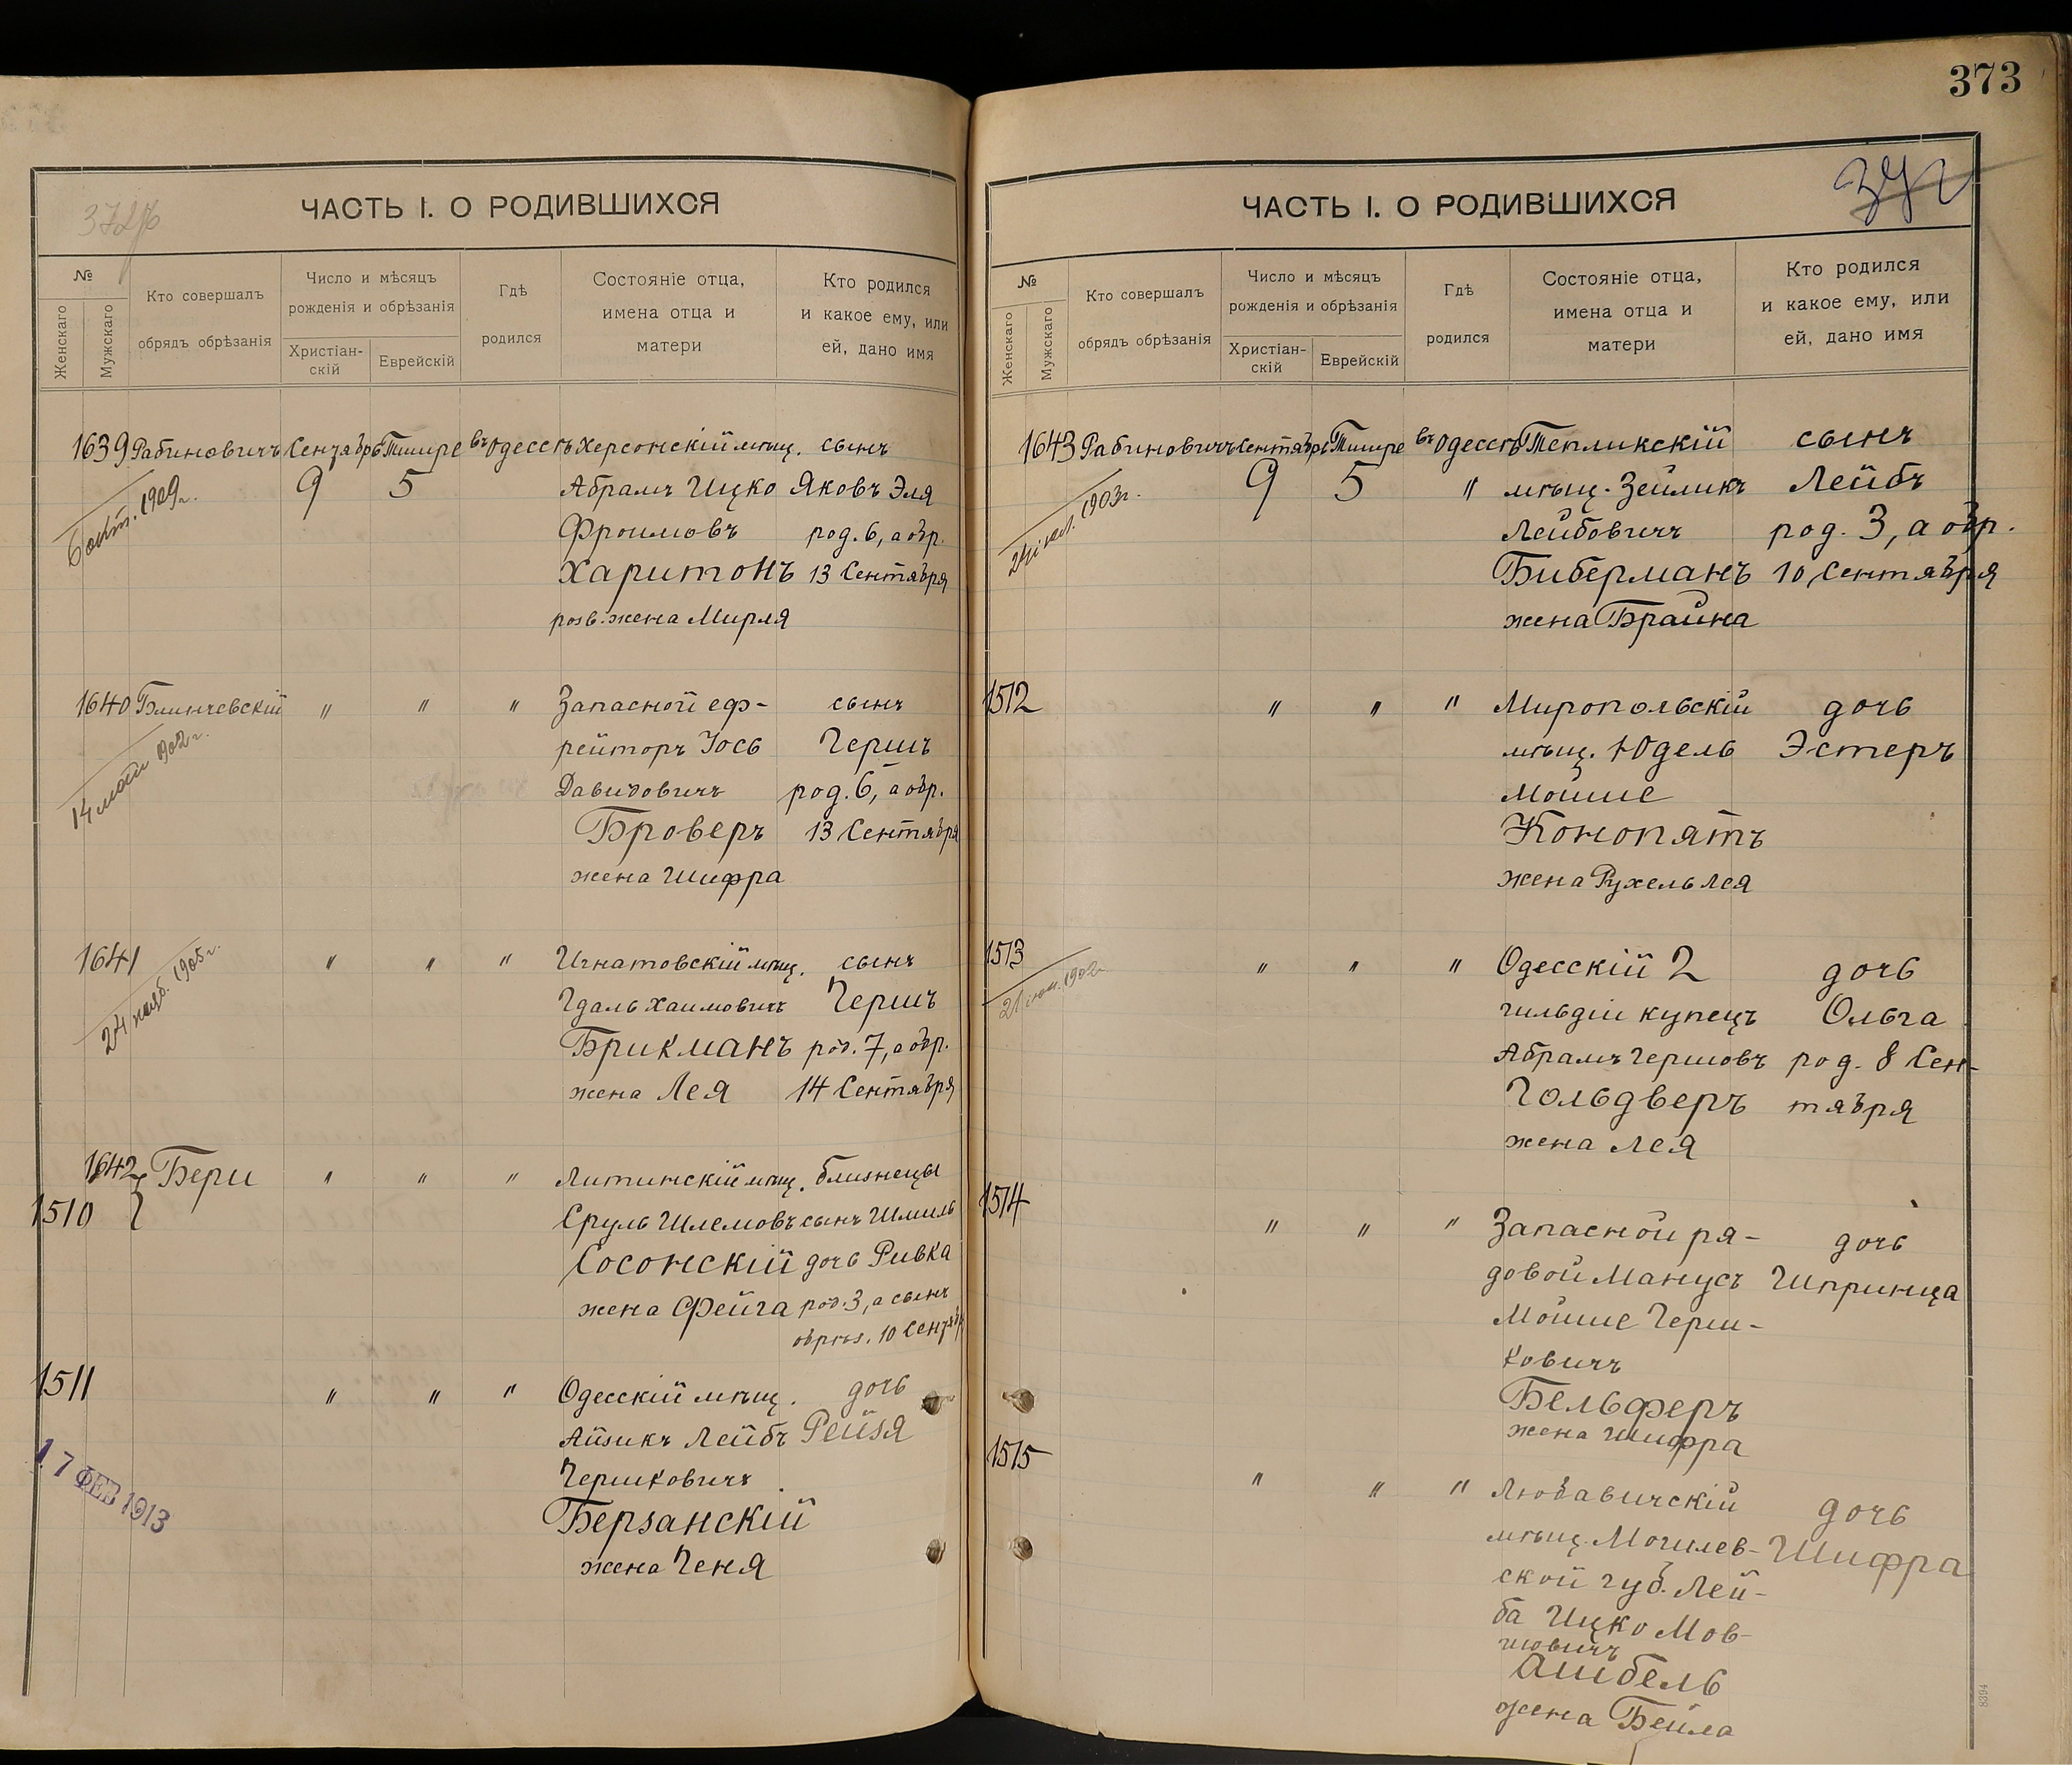 373
ЧАСТЬ I. О РОДИВШИХСЯ
№
Женскаго
Мужскаго
Кто совершалъ
обрядъ обрѣзанія
Число и мѣсяцъ
рожденія и обрѣзанія
Христіан-
скій
Еврейскій
Гдѣ
родился
Состояніе отца,
имена отца и
матери
Кто родился
и какое ему, или
ей, дано имя
1639 Рабиновичъ Сентябрь Тишре въ Одессѣ Херсонскій мѣщ. сынъ
9 5 Абрамъ Ицко Яковъ Эля
1909г.
Фроимовъ род. 6, а обр.
Харитонъ 13 Сентября
жена Мирля
1640 Блинчевскій " " " Запасной еф- сынъ
рейторъ Іось Гершъ
14 1902г.
Давидовичъ род. 6, а обр.
Броверъ 13 Сентября
жена Шифра
1641 " " " Игнатовскій мѣщ. сынъ
24 1905г.
Гдаль Хаимовичъ Гершъ
Брикманъ род. 7, а обр.
жена Лея 14 Сентября
1642 Бери " " " Литинскій мѣщ. близнецы
1510 Сруль Шлемовъ сынъ Шмиль
Сосонскій дочь Ривка
жена Фейга род. 3, а сынъ
обрѣз. 10 Сентябр
1511 " " " Одесскій мѣщ. дочь
Айзикъ Лейбъ Рейзя
17 ФЕВ 1913
Гершковичъ
Берзанскій
жена Геня
ЧАСТЬ I. О РОДИВШИХСЯ
№
Женскаго
Мужскаго
Кто совершалъ
обрядъ обрѣзанія
Число и мѣсяцъ
рожденія и обрѣзанія
Христіан-
скій
Еврейскій
Гдѣ
родился
Состояніе отца,
имена отца и
матери
Кто родился
и какое ему, или
ей, дано имя
1643 Рабиновичъ Сентябрь Тишре въ Одессѣ Тепликскій сынъ
9 5 " мѣщ. Зейликъ Лейбъ
1903г.
Лейбовичъ род. 3, а обр.
Биберманъ 10 Сентября
жена Брайна
1512 " " " Миропольскій дочь
мѣщ. Юдель Эстеръ
Мойше
Конопятъ
жена Рухель Лея
1513 " " " Одесскій 2 дочь
21 1902г.
гильдіи купецъ Ольга
Абрамъ Гершовъ род. 8 Сен-
Гольдверъ тября
жена Лея
1514 " " " Запасной ря- дочь
довой Манусъ Шпринца
Мойше Герш-
ковичъ
Бельферъ
жена Шифра
1515 " " " Любавичскій дочь
мѣщ. Могилев- Шифра
ской губ. Лей-
ба Ицко Мов-
шовичъ
Ашбель
жена Бейла
8394